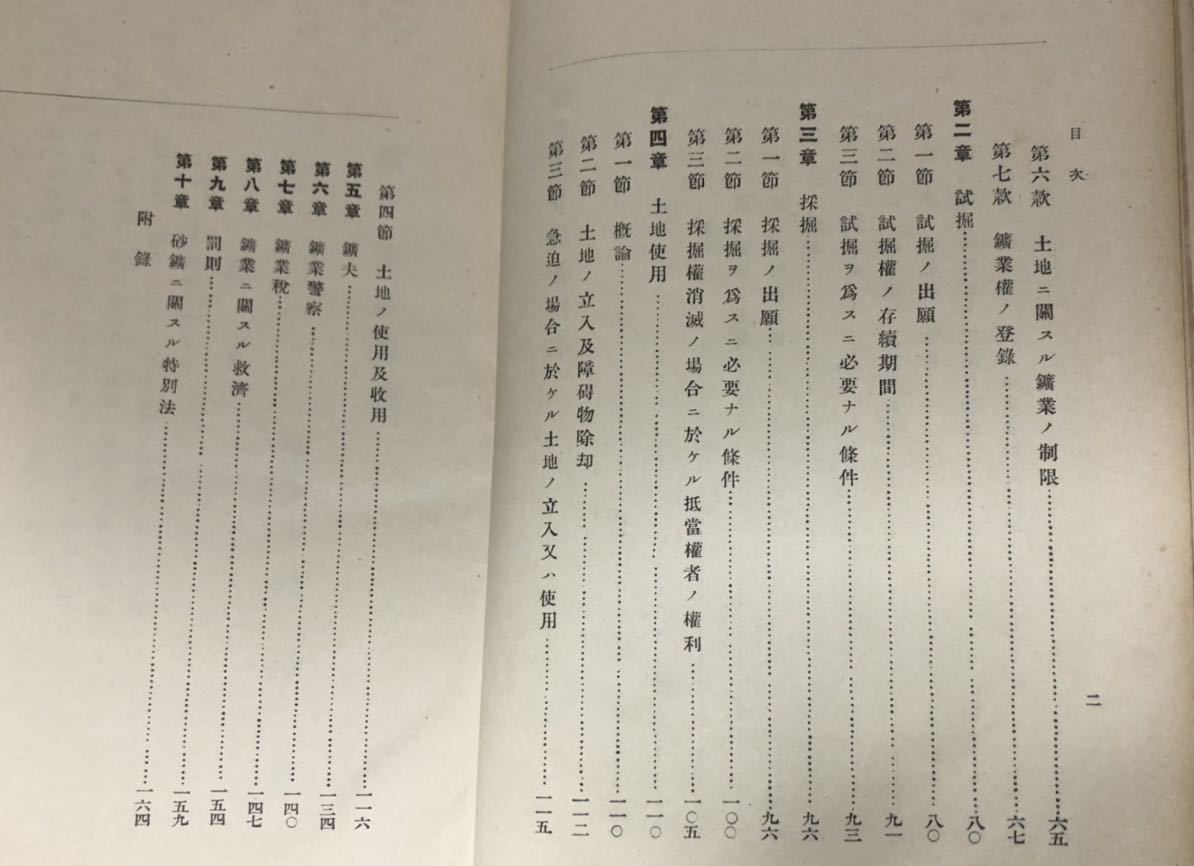 目次
二
第六款 土地ニ關スル鑛業ノ制限……六五
第七款 鑛業權ノ登錄……六七
第二章 試掘……八〇
第一節 試掘ノ出願……八〇
第二節 試掘權ノ存續期間……九一
第三節 試掘ヲ爲スニ必要ナル條件……九三
第三章 採掘……九六
第一節 採掘ノ出願……九六
第二節 採掘ヲ爲スニ必要ナル條件……一〇〇
第三節 採掘權消滅ノ場合ニ於ケル抵當權者ノ權利……一〇五
第四章 土地使用……一一〇
第一節 概論……一一〇
第二節 土地ノ立入及障碍物除却……一一二
第三節 急迫ノ場合ニ於ケル土地ノ立入又ハ使用……一一五
第四節 土地ノ使用及收用……一一六
第五章 鑛夫……一三四
第六章 鑛業警察……一四〇
第七章 鑛業稅……一四七
第八章 鑛業ニ關スル救濟……一五四
第九章 罰則……一五九
第十章 砂鑛ニ關スル特別法……一六四
附錄